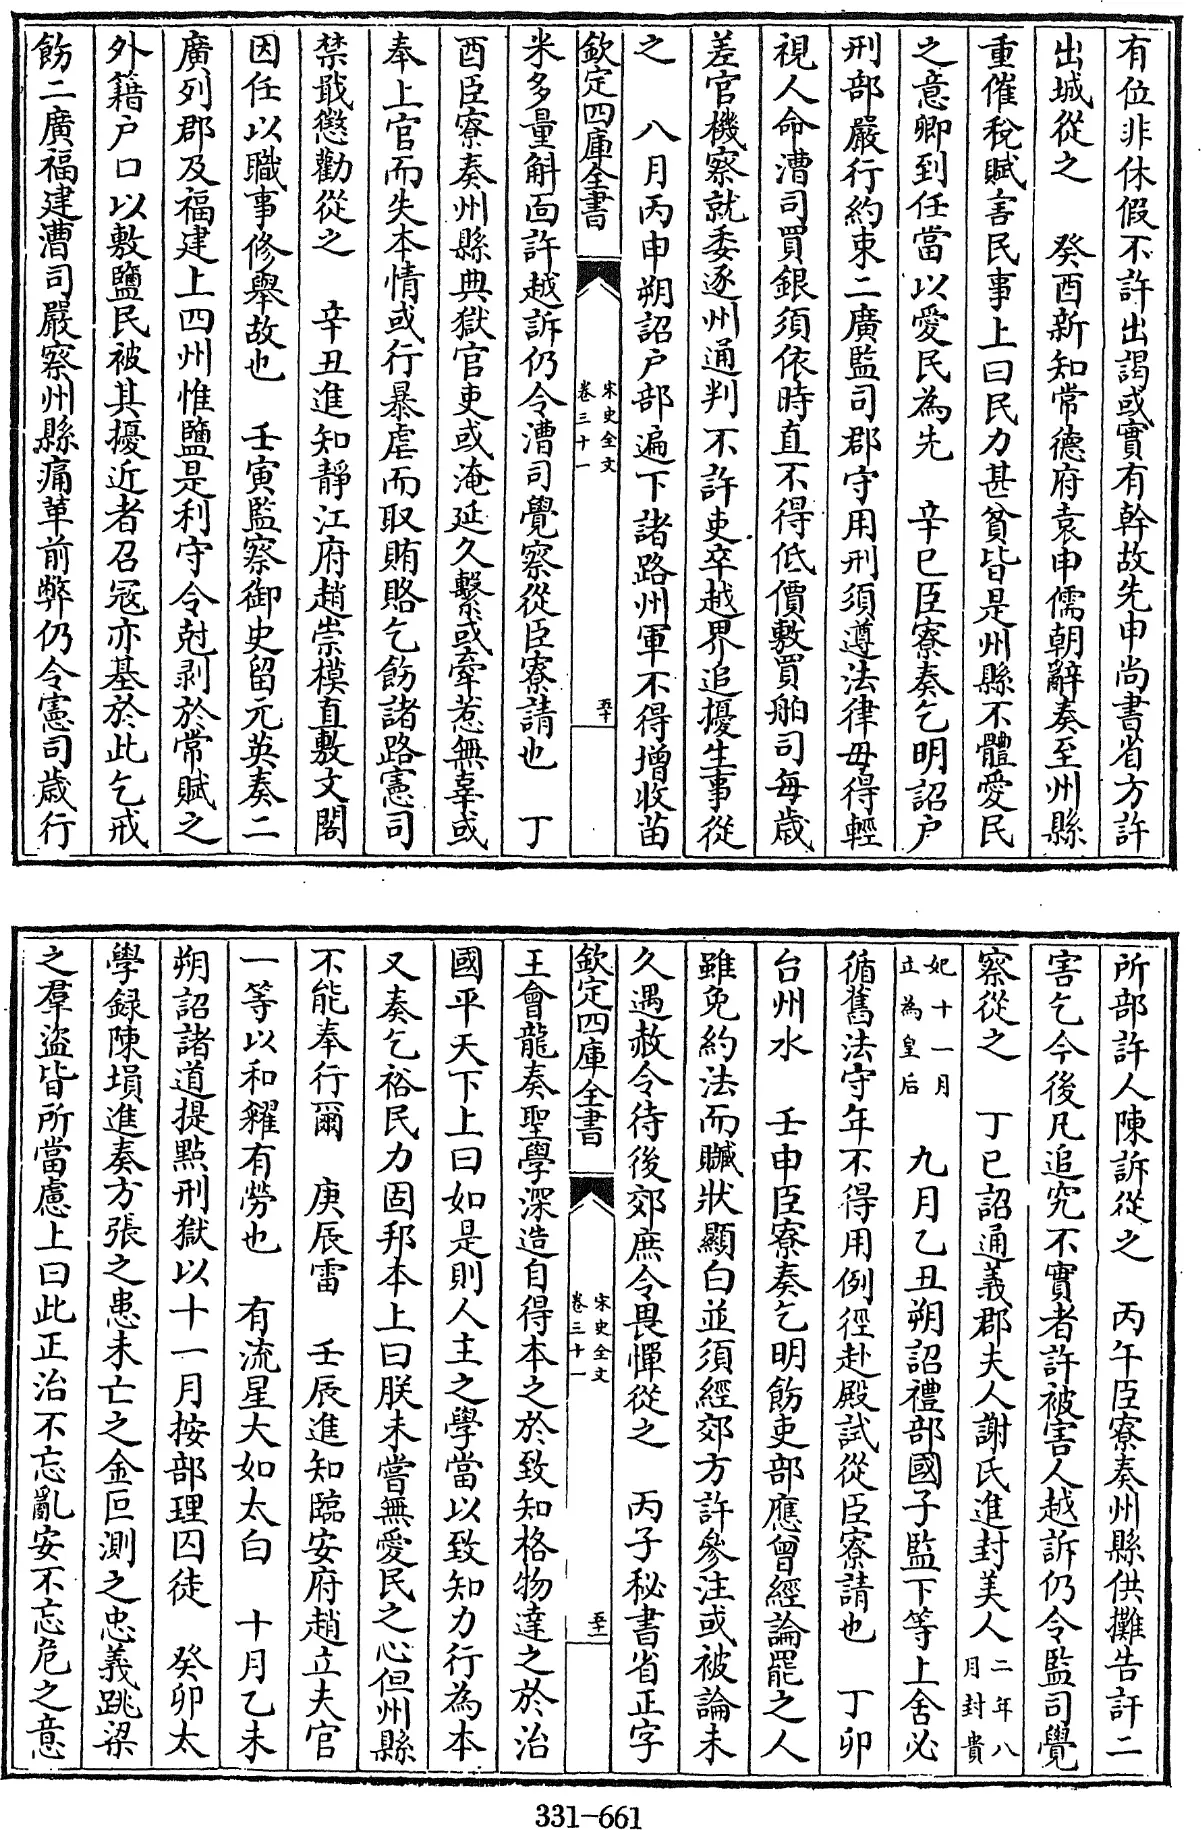 有位非休假不許出謁或實有幹故先申尚書省方許
出城從之　癸酉新知常德府袁申儒朝辭奏至州縣
重催稅賦害民事上曰民力甚貧皆是州縣不體愛民
之意卿到任當以愛民為先　辛巳臣寮奏乞明詔户
刑部嚴行約束二廣監司郡守用刑須遵法律毋得輕
視人命漕司買銀須依時直不得低價敷買舶司每歲
差官機察就委逐州通判不許吏卒越界追擾生事從
之　八月丙申朔詔户部遍下諸路州軍不得增收苗
欽定四庫全書
宋史全文
卷三十一
五十
米多量斛面許越訴仍令漕司覺察從臣寮請也　丁
酉臣寮奏州縣典獄官吏或淹延久繫或牽惹無辜或
奉上官而失本情或行暴虐而取賄賂乞飭諸路憲司
禁戢懲勸從之　辛丑進知靜江府趙崇模直敷文閣
因任以職事修舉故也　壬寅監察御史留元英奏二
廣列郡及福建上四州惟鹽是利守令尅剥於常賦之
外籍户口以敷鹽民被其擾近者召冦亦基於此乞戒
飭二廣福建漕司嚴察州縣痛革前弊仍令憲司歲行
所部許人陳訴從之　丙午臣寮奏州縣供攤告訐二
害乞今後凡追究不實者許被害人越訴仍令監司覺
察從之　丁巳詔通義郡夫人謝氏進封美人二年八月封貴
妃十一月立為皇后　九月乙丑朔詔禮部國子監下等上舍必
循舊法守年不得用例徑赴殿試從臣寮請也　丁卯
台州水　壬申臣寮奏乞明飭吏部應曾經論罷之人
雖免約法而贓狀顯白並須經郊方許參注或被論未
久遇赦令待後郊庶令畏憚從之　丙子秘書省正字
欽定四庫全書
宋史全文
卷三十一
五十一
王會龍奏聖學深造自得本之於致知格物達之於治
國平天下上曰如是則人主之學當以致知力行為本
又奏乞裕民力固邦本上曰朕未嘗無愛民之心但州縣
不能奉行爾　庚辰雷　壬辰進知臨安府趙立夫官
一等以和糴有勞也　有流星大如太白　十月乙未
朔詔諸道提點刑獄以十一月按部理囚徒　癸卯太
學録陳塤進奏方張之患未亡之金叵測之忠義跳梁
之羣盜皆所當慮上曰此正治不忘亂安不忘危之意
331-661